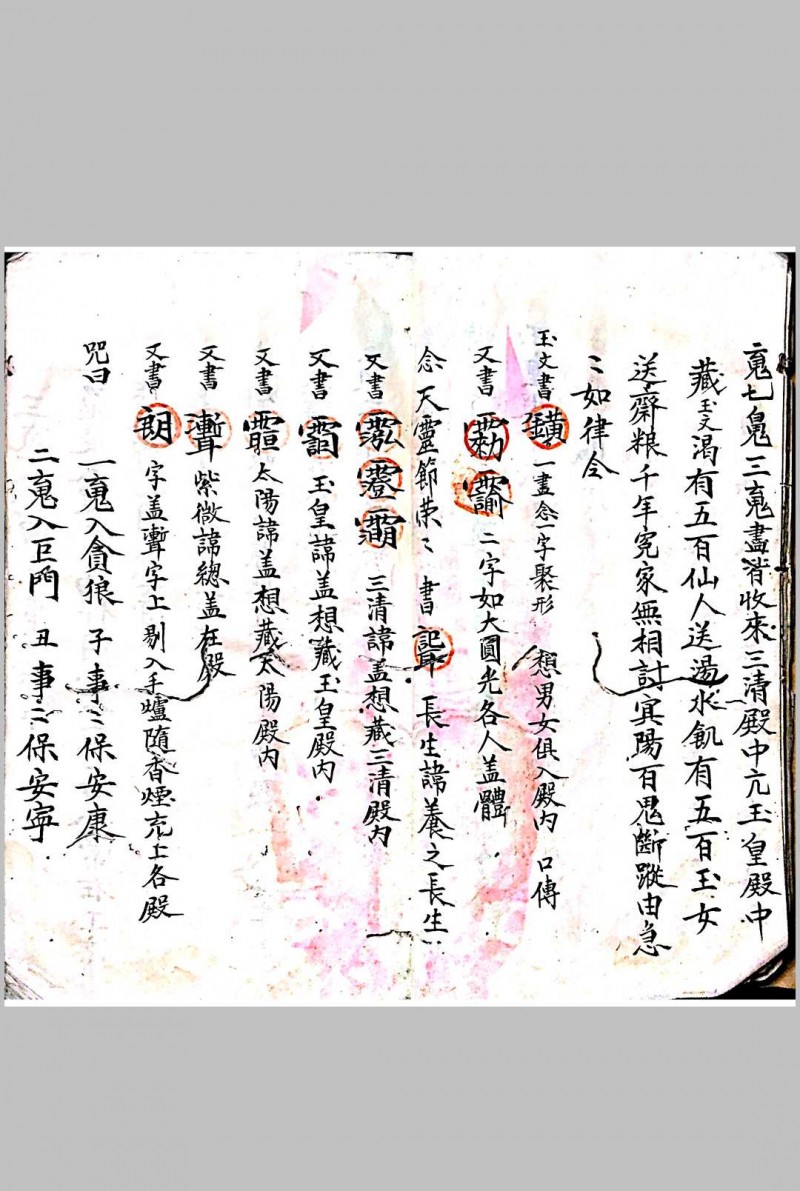 䰟七魄三䰟盡皆收來三清殿中亢玉皇殿中
藏玉文渴有五百仙人送湯水飢有五百玉女
送齋粮千年冤家無相討㝠陽百鬼斷蹤由急
〻如律令
玉文書 一畫念一字聚形 想男女俱入殿內 口傳
又書 二字如大圓光各人盖體
念天靈節荣〻 書 長生諱養之長生
又書 三清諱盖想藏三清殿內
又書 玉皇諱盖想藏玉皇殿內
又書 太陽諱盖想藏太陽殿內
又書 紫微諱總盖在殿
又書 字盖 字上剔入手爐随香煙充上各殿
咒曰 一䰟入貪狼 子事〻保安康
二䰟入巨門 丑事〻保安寜